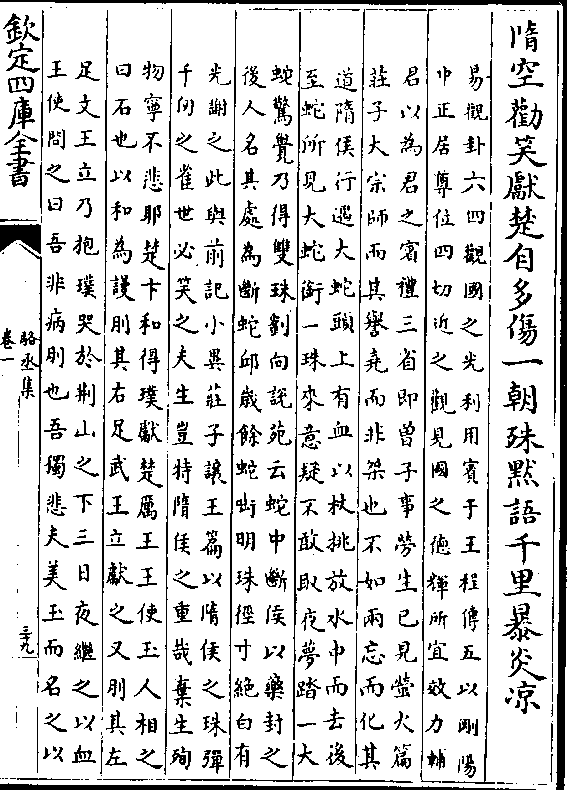 隋空勸笑獻楚自多傷一朝殊黙語千里暴炎凉
易觀卦六四觀國之光利用賓于王程傳五以剛陽
中正居尊位四切近之觀見國之德輝所宜效力輔
君以為君之賓禮三省即曽子事勞生已見螢火篇
莊子大宗師而其譽堯而非桀也不如兩忘而化其
道隋侯行遇大蛇頭上有血以杖挑放水中而去後
至蛇所見大蛇銜一珠來意疑不敢取夜夢踏一大
蛇驚覺乃得雙珠劉向説苑云蛇中斷侯以藥封之
後人名其處為斷蛇邱歲餘蛇啣明珠徑寸絶白有
光謝之此與前記小異莊子讓王篇以隋侯之珠彈
千仞之雀世必笑之夫生豈特隋侯之重哉棄生殉
物寧不悲耶楚卞和得璞獻楚厲王王使玉人相之
曰石也以和為謾刖其右足武王立獻之又刖其左
足文王立乃抱璞哭於荆山之下三日夜繼之以血
王使問之曰吾非病刖也吾獨悲夫美玉而名之以
欽定四庫全書
駱丞集
卷一
三十九